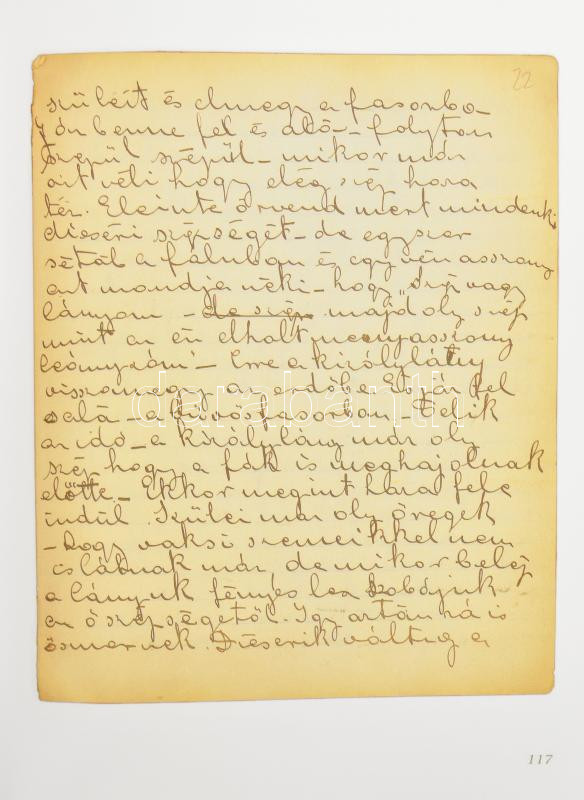 22
szüleit és elmegy a fasorba
Jön benne fel és alá – folyton
szépül szépül – mikor már
azt véli hogy elég szép haza
tér. Eleinte örvend mert mindenki
dicséri szépségét – de egyszer
sétál a faluban és egy vén asszony
azt mondja néki – hogy „szép vagy
lányom – de szép majd oly szép
mint az én elholt menyasszony
leányzóm – Erre a királylány
vissza megy az erdőbe és jár fel
alá – a fasorban. Telik
az idő – a királylány már oly
szép hogy a fák is meghajolnak
előtte – Ekkor megint haza felé
indúl. Szülei már oly öregek
– hogy vaksi szemeikkel nem
is látnak már de mikor belép
a lányuk fényes lesz szobájuk
az ő szépségétől. Így aztán rá is
ösmernek. Dicserik váltig a
darabanth
117